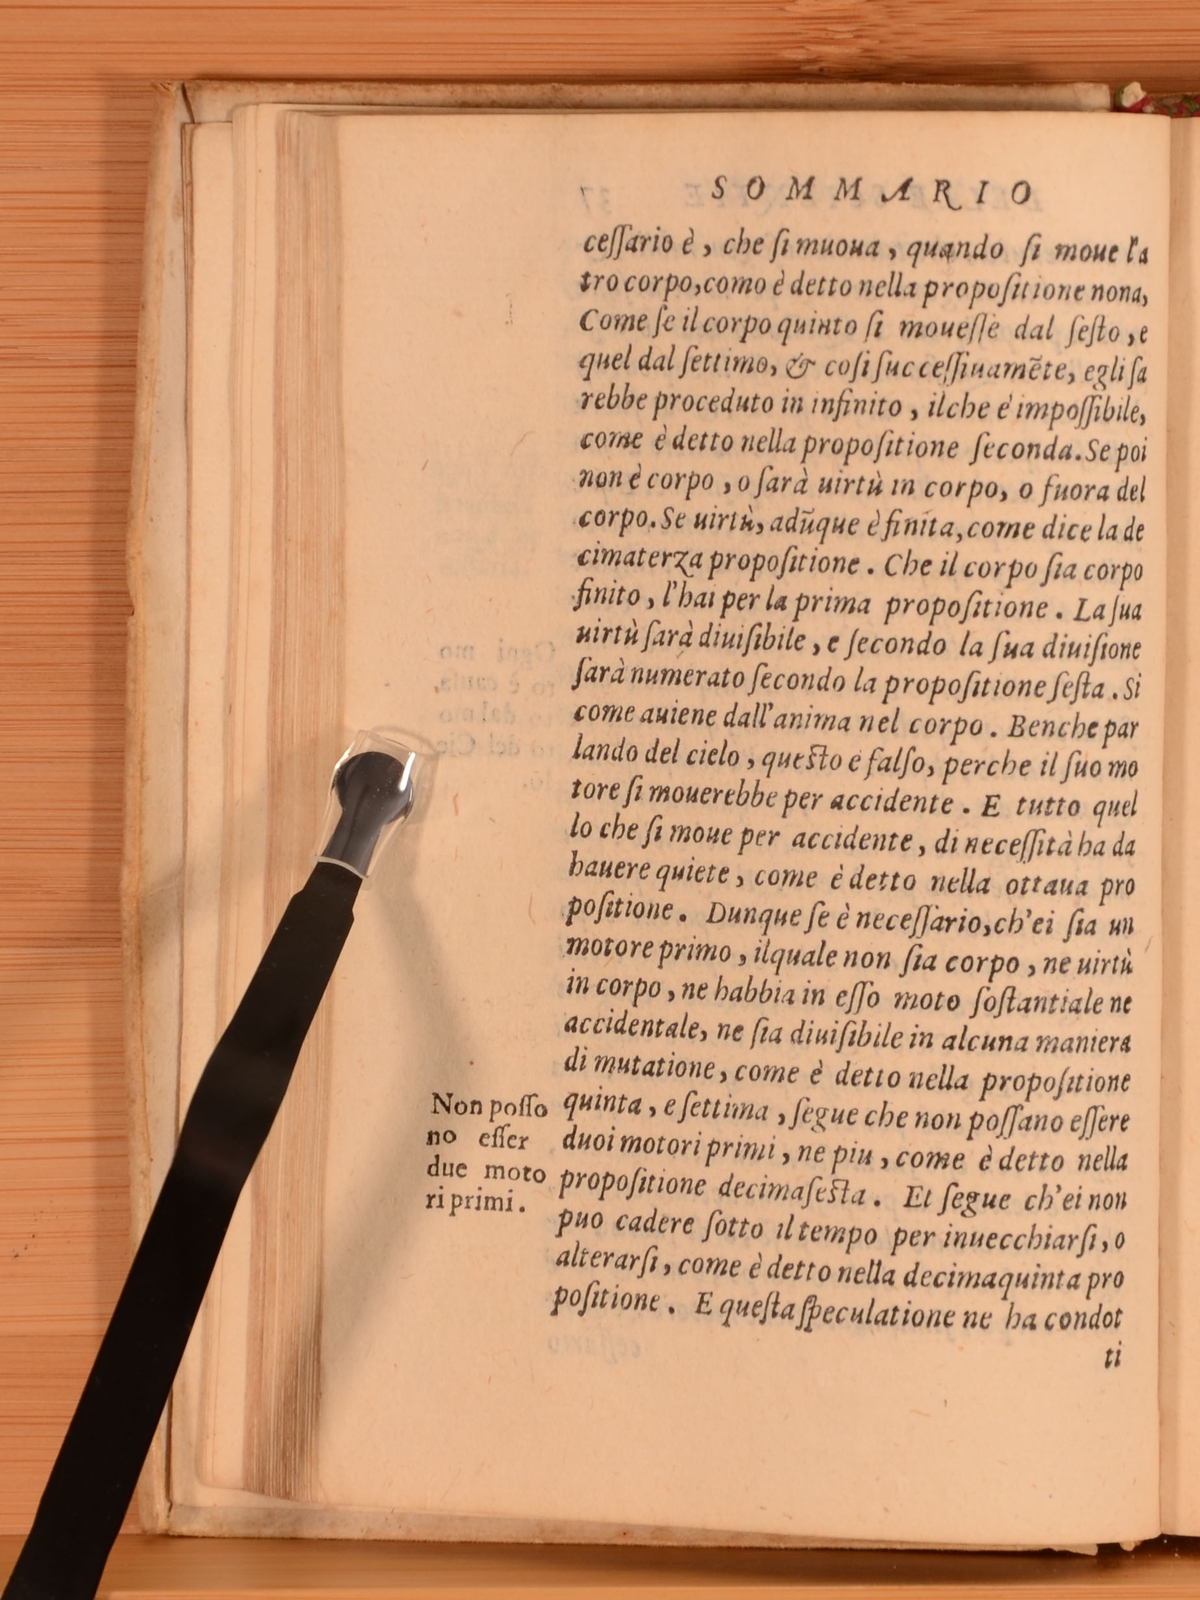 SOMMARIO
ceſſario è, che ſi muoua, quando ſi moue l'a
tro corpo, como è detto nella propoſitione nona,
Come ſe il corpo quinto ſi moueſſe dal ſeſto, e
quel dal ſettimo, & coſi ſucceſſiuamẽte, egli ſa
rebbe proceduto in infinito, ilche è impoſſibile,
come è detto nella propoſitione ſeconda. Se poi
non è corpo, o ſarà uirtù in corpo, o fuora del
corpo. Se uirtù, adũque è finita, come dice la de
cimaterza propoſitione. Che il corpo ſia corpo
finito, l'hai per la prima propoſitione. La ſua
uirtù ſarà diuiſibile, e ſecondo la ſua diuiſione
ſarà numerato ſecondo la propoſitione ſeſta. Si
come auiene dall'anima nel corpo. Benche par
lando del cielo, queſto e falſo, perche il ſuo mo
tore ſi mouerebbe per accidente. E tutto quel
lo che ſi moue per accidente, di neceſſità ha da
hauere quiete, come è detto nella ottaua pro
poſitione. Dunque ſe è neceſſario, ch'ei ſia un
motore primo, ilquale non ſia corpo, ne uirtù
in corpo, ne habbia in eſſo moto ſoſtantiale ne
accidentale, ne ſia diuiſibile in alcuna maniera
di mutatione, come è detto nella propoſitione
quinta, e ſettima, ſegue che non poſſano eſſere
duoi motori primi, ne piu, come è detto nella
propoſitione decimaſeſta. Et ſegue ch'ei non
puo cadere ſotto il tempo per inuecchiarſi, o
alterarſi, come è detto nella decimaquinta pro
poſitione. E queſta ſpeculatione ne ha condot
ti
Non poſſo
no eſſer
due moto
ri primi.